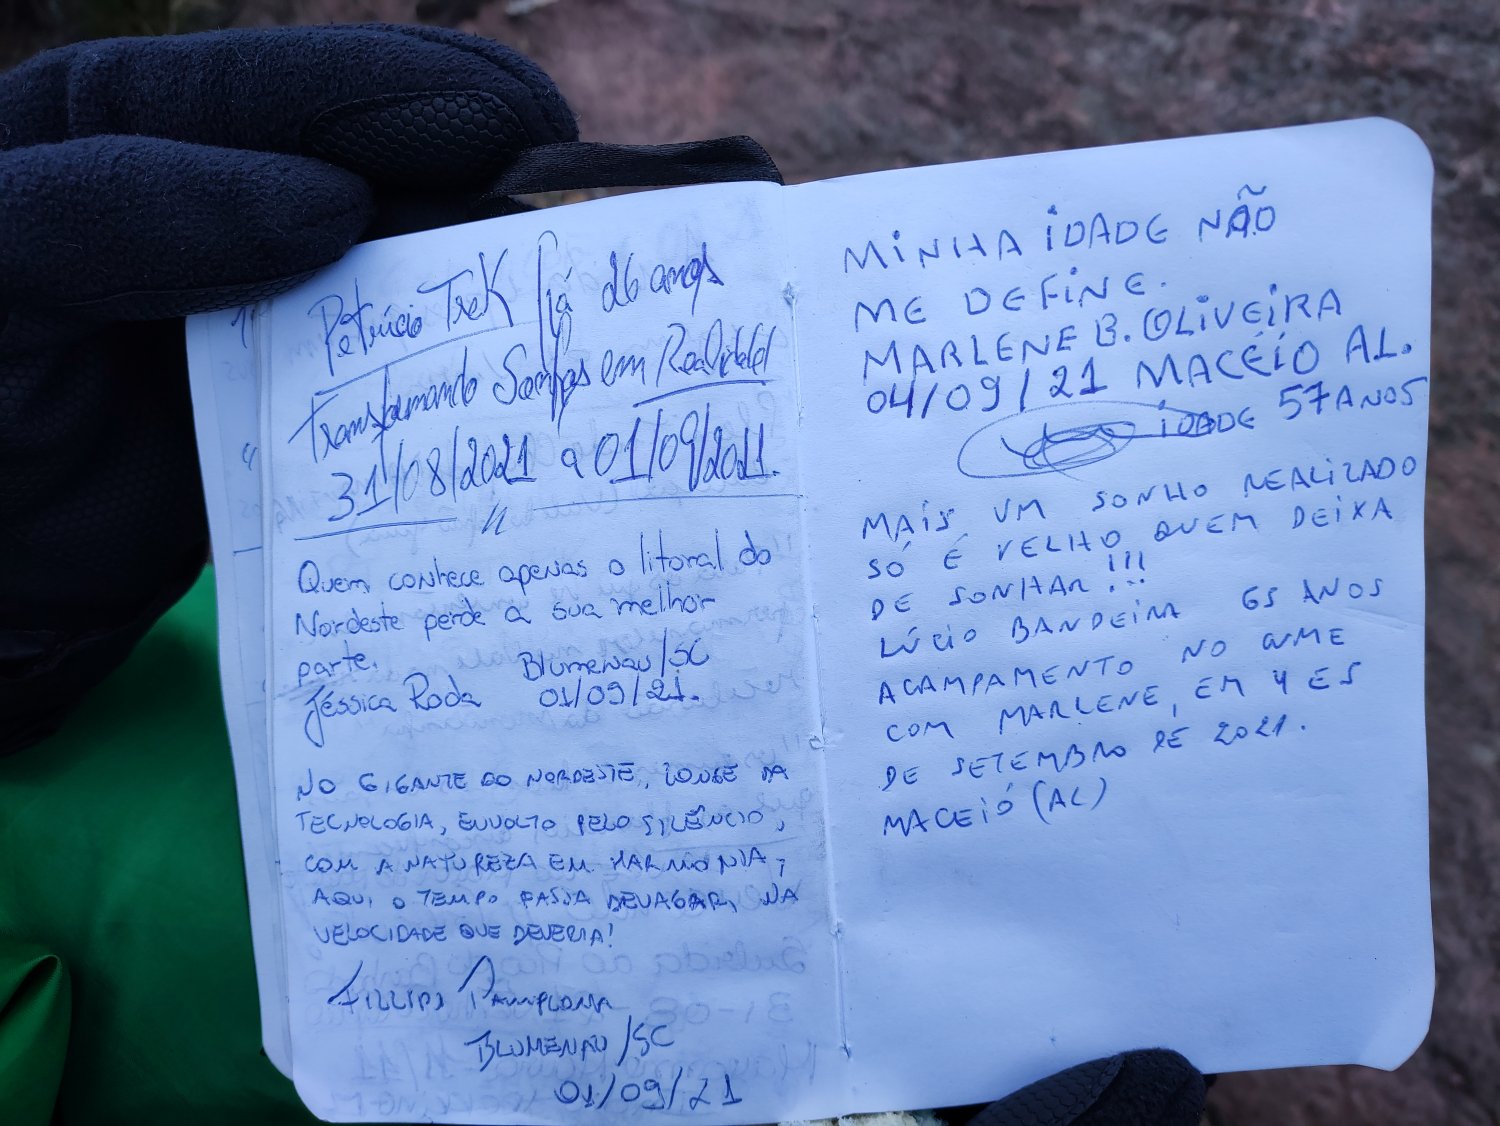 Petrúcio Trek há 26 anos
Transformando Sonhos em Realidade
31/08/2021 a 01/09/2021.
Quem conhece apenas o litoral do
Nordeste perde a sua melhor
parte. Blumenau/SC
Jéssica Roda 01/09/21.
NO GIGANTE DO NORDESTE, LONGE DA
TECNOLOGIA, ENVOLTO PELO SILÊNCIO,
COM A NATUREZA EM HARMONIA,
AQUI O TEMPO PASSA DEVAGAR, NA
VELOCIDADE QUE DEVERIA!
FILLIPI PAMPLONA
BLUMENAU/SC
01/09/21
MINHA IDADE NÃO
ME DEFINE.
MARLENE B. OLIVEIRA
04/09/21 MACEIÓ AL.
IDADE 57 ANOS
MAIS UM SONHO REALIZADO
SÓ É VELHO QUEM DEIXA
DE SONHAR!!!
LÚCIO BANDEIRA 65 ANOS
ACAMPAMENTO NO CUME
COM MARLENE, EM 4 ES
DE SETEMBRO DE 2021.
MACEIÓ (AL)